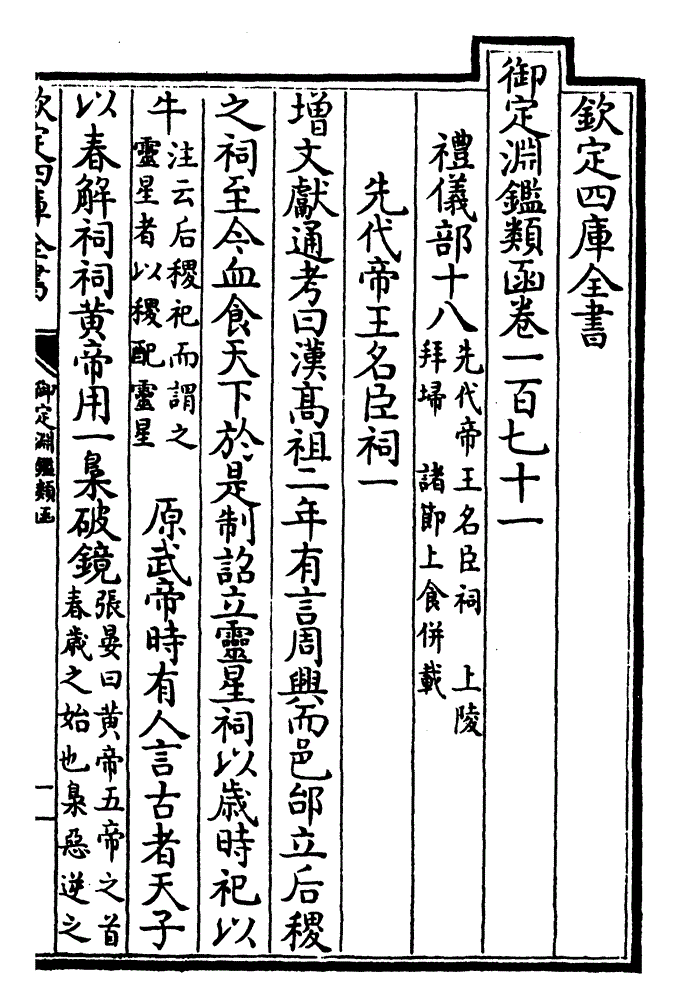 欽定四庫全書
御定淵鑑類函卷一百七十一
禮儀部十八
先代帝王名臣祠　上陵
拜埽　諸節上食併載
先代帝王名臣祠一
增文獻通考曰漢髙祖二年有言周興而邑邰立后稷
之祠至今血食天下於是制詔立靈星祠以歲時祀以
牛
注云后稷祀而謂之
靈星者以稷配靈星
原武帝時有人言古者天子
以春解祠祠黄帝用一梟破鏡
張晏曰黄帝五帝之首
春歲之始也梟惡逆之
欽定四庫全書
御定淵鑑類函
一